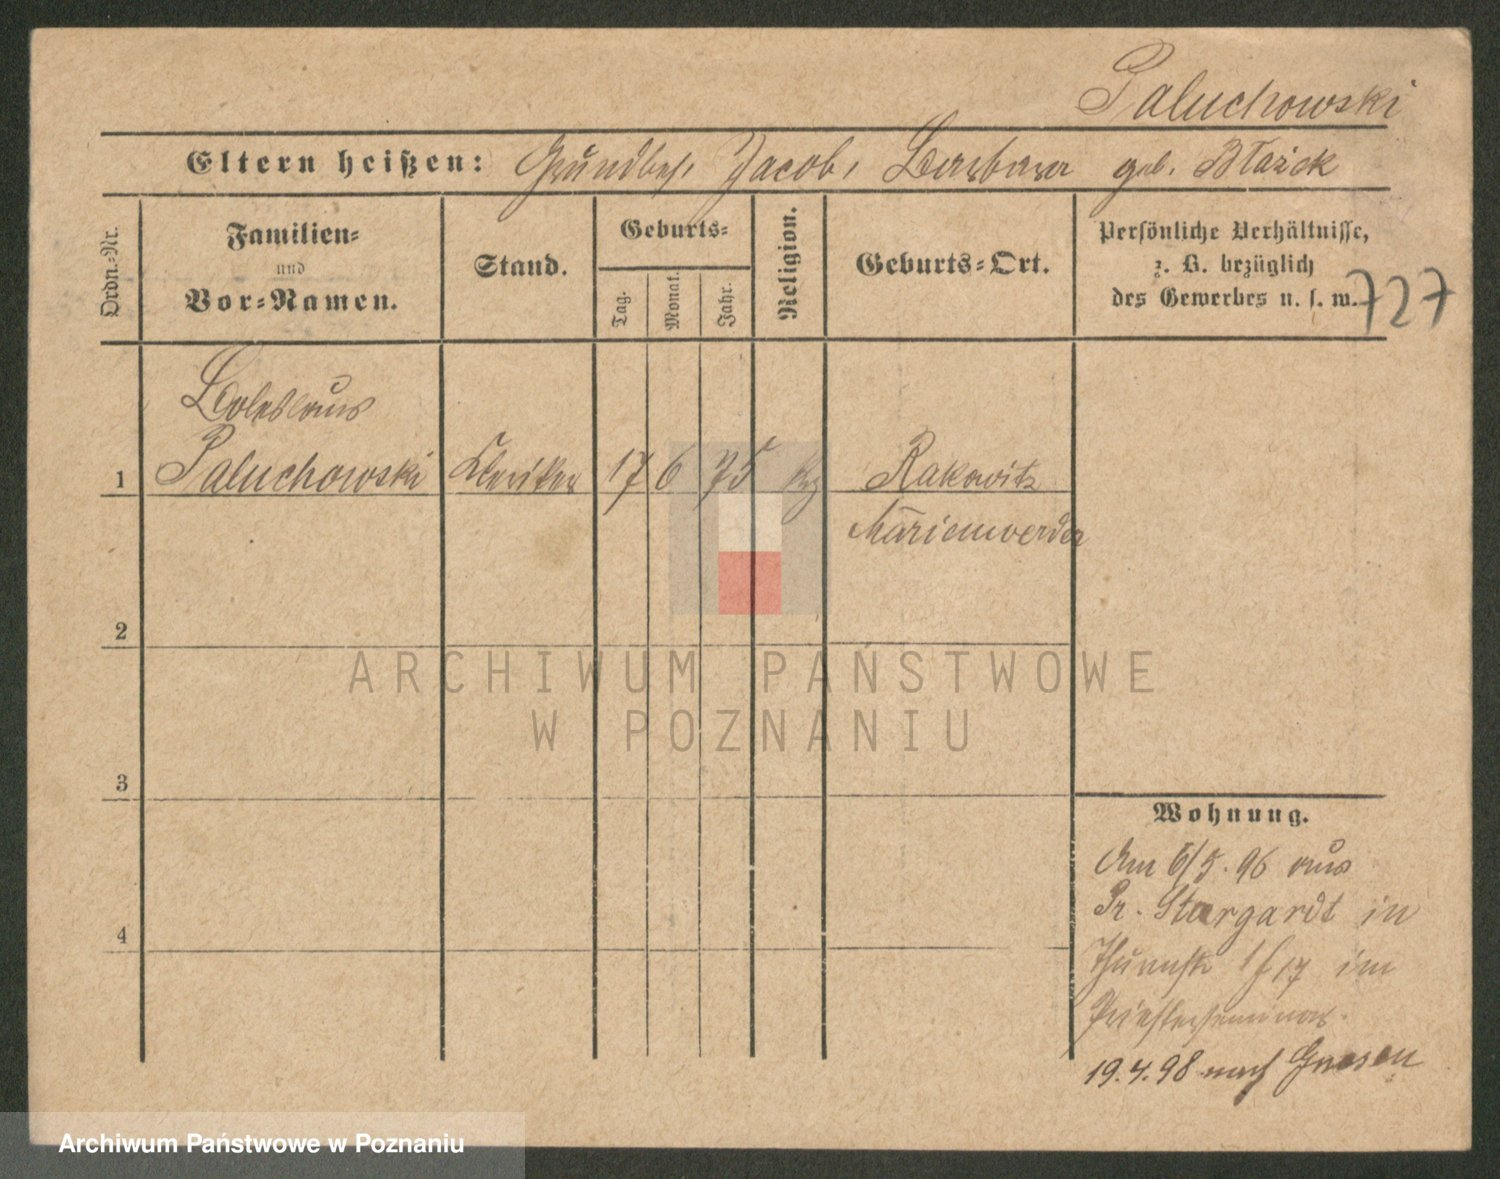 Paluchowski
Eltern heißen: Grundbes. Jacob, Barbara geb. Blažek
Ordn.-Nr.
Familien-
und
Vor-Namen.
Stand.
Geburts-
Tag.
Monat.
Jahr.
Religion.
Geburts-Ort.
Persönliche Verhältnisse,
z. B. bezüglich
des Gewerbes u. s. w.
727
Boleslaus
1 Paluchowski Kleriker 17 6 75 Rakowitz
Marienwerder
2
3
4
Wohnung.
Am 6/5. 96 aus
Pr. Stargardt in
17 im
Priesterseminar.
19.4.98 nach Gnesen
ARCHIWUM PAŃSTWOWE
W POZNANIU
Archiwum Państwowe w Poznaniu